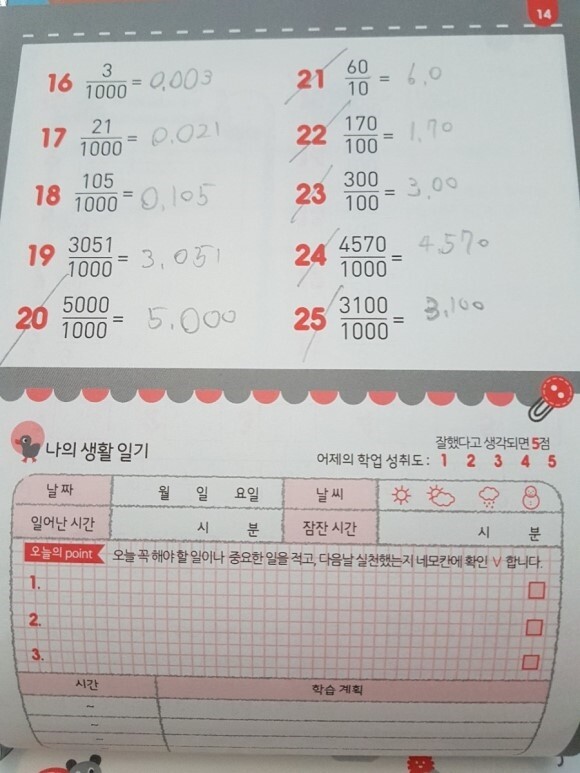 14
16 3/1000 = 0.003
17 21/1000 = 0.021
18 105/1000 = 0.105
19 3051/1000 = 3.051
20 5000/1000 = 5.000
21 60/10 = 6.0
22 170/100 = 1.70
23 300/100 = 3.00
24 4570/1000 = 4.570
25 3100/1000 = 3.100
나의 생활 일기
잘했다고 생각되면 5점
어제의 학업 성취도 : 1 2 3 4 5
날짜 월 일 요일 날씨
일어난 시간 시 분 잠잔 시간 시 분
오늘의 point 오늘 꼭 해야 할 일이나 중요한 일을 적고, 다음날 실천했는지 네모칸에 확인 V 합니다.
1.
2.
3.
시간 학습 계획
~
~
~